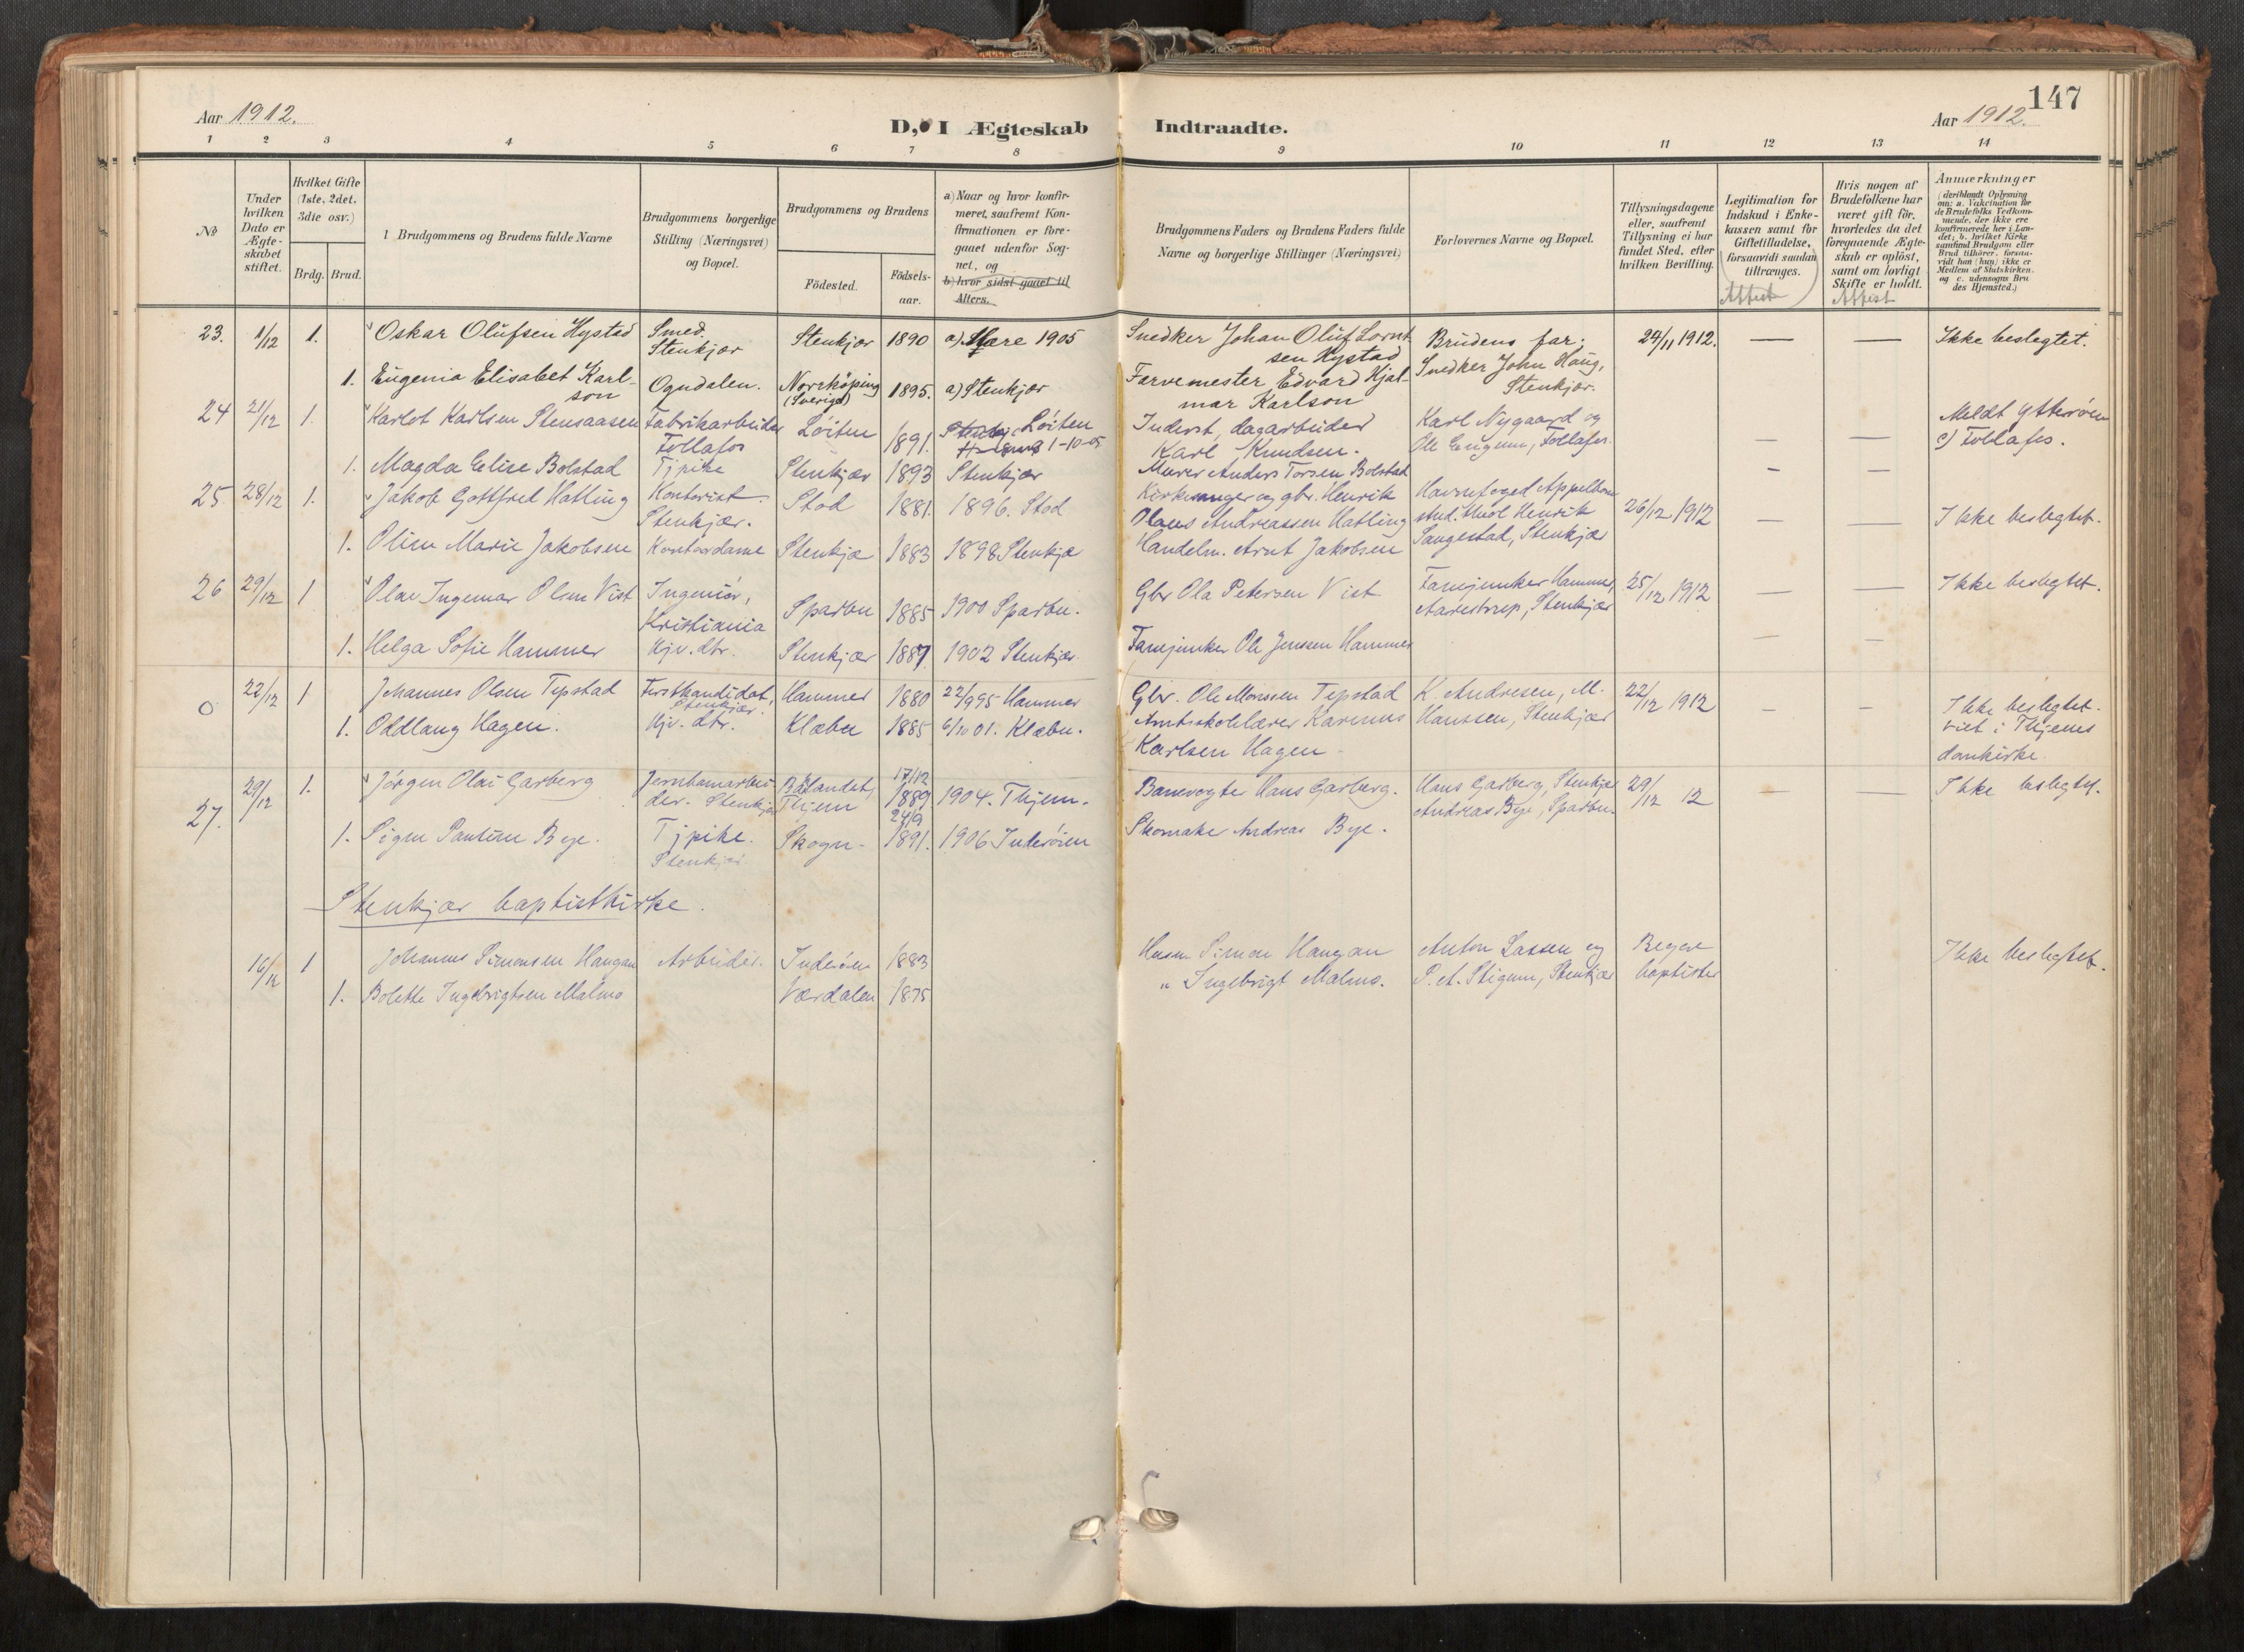 147
Aar 1912.
D, I Ægteskab Indtraadte.
Aar 1912.
1 2 3 4 5 6 7 8 9 10 11 12 13 14
№
Under hvilken Dato er Ægteskabet stiftet.
Hvilket Gifte (1ste, 2det, 3die osv.)
Brdg. Brud.
Brudgommens og Brudens fulde Navne
Brudgommens borgerlige Stilling (Næringsvei) og Bopæl.
Brudgommens og Brudens
Födested.
Födsels-aar.
a) Naar og hvor konfirmeret, saafremt Konfirmationen er foregaaet udenfor Sognet, og
b) hvor sidst gaaet til Alters.
Brudgommens Faders og Brudens Faders fulde Navne og borgerlige Stillinger (Næringsvei)
Forlovernes Navne og Bopæl.
Tillysningsdagene eller, saafremt Tillysning ei har fundet Sted, efter hvilken Bevilling.
Legitimation for Indskud i Enkekassen samt for Giftetilladelse, forsaavidt saadan tiltrænges.
Attest
Hvis nogen af Brudefolkene har været gift för, hvorledes da det foregaaende Ægteskab er oplöst, samt om lovligt Skifte er holdt.
Attest
Anmærkninger
(deriblandt Oplysning om: a. Vaksination for de Brudefolks Vedkommende, der ikke ere konfirmerede her i Landet; b. hvilket Kirkesamfund Brudgom eller Brud tilhörer, forsaavidt han (hun) ikke er Medlem af Statskirken, og c. udensogns Brudes Hjemsted.)
23. 1/12 1. Oskar Olufsen Hystad Smed Stenkjær Stenkjær 1890 a) Mære 1905 Snedker Johan Oluf Lorntsen Hystad Brudens far. 24/11 1912. — — Ikke beslegtet.
1. Eugenia Elisabet Karlson Ogndalen. Norrköping (Sverige) 1895. a) Stenkjær Farvemester Edvard Hjalmar Karlson Snedker John Haug, Stenkjær.
24 21/12 1. Karlot Karlsen Stensaasen Fabrikarbeider Follafos Löiten 1891. Löiten 1-10-05 Inderst, dagarbeider Karl Knudsen. Karl Nygaard og Ole Follafos. — — Meldt Ytterøen c) Follafos.
1. Magda Elise Bolstad Tjpike Stenkjær 1893 Stenkjær Murer Anders Torsen Bolstad — —
25 28/12 1. Jakob Gottfred Hatling Kontorist Stenkjær. Stod 1881. 1896. Stod Kirkesanger og gbr. Henrik Olaus Andreassen Hatling Havnefoged Appelbom stud. theol Henrik Sangestad, Stenkjær 26/12 1912 — — Ikke beslegtet.
1. Oline Marie Jakobsen Kontordame Stenkjæ 1883 1898 Stenkjæ Handelm. Arnt Jakobsen
26 29/12 1 Olav Ingemar Olsen Vist Ingeniör, Kristiania Sparbu 1885 1900 Sparbu. Gbr Ola Petersen Vist Fanejunker Hammer, Aarestrup, Stenkjær 25/12 1912 — — Ikke beslegtet.
1. Helga Sofie Hammer Hjv. dtr. Stenkjær 1887 1902 Stenkjær Fanejunker Ole Jenssen Hammer — —
0 22/12 1 Johannes Olsen Tepstad Forstkandidat, Stenkjær. Hammer 1880 22/9 95 Hammer Gbr. Ole Monssen Tepstad K. Andresen, M. Hanssen, Stenkjær 22/12 1912 — — Ikke beslegtet. viet i Thjems domkirke.
1. Oddlaug Hagen. Hjv. dtr. Klæbu 1885 6/10 01. Klæbu. Amtskolelærer Karenus Karlsen Hagen
27. 29/12 1. Jörgen Olai Garberg Jernbanearbeider. Stenkjær Thjem 17/12 1889 1904. Thjem. Banevogter Hans Garberg. Hans Garberg, Stenkjær Andreas Bye, Sparbu. 29/12 12 — — Ikke beslegtet.
1. Signe Pauline Bye. Tjpike. Stenkjær Skogn 24/9 1891. 1906 Inderöien Skomake Andreas Bye.
Stenkjær baptistkirke.
16/11 1 Johannes Simonsen Haugan Arbeider. Inderöen 1883 Husm. Simon Haugan Anton Lassen og P. A. Stigum, Stenkjær Begge baptister Ikke beslegtet.
1. Bolette Ingebrigtsen Malmo Værdalen 1875 " Ingebrigt Malmo.